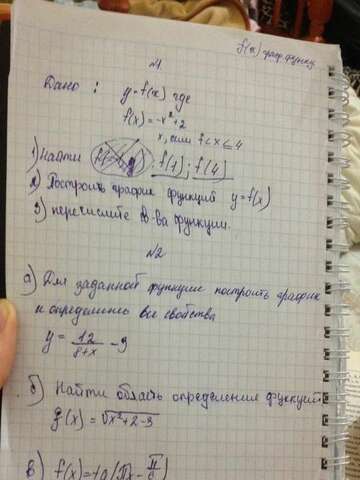 f(x) граф. функц.
№1
Дано : y=f(x) где
f(x)=-x²+2
x, если 1<x≤4
1) Найти ; f(1) ; f(4)
2) Построить график функций y=f(x)
3) перечислите св-ва функции.
№2
а) Для заданной функции построить график
и определить все свойства
y = 12/(8+x) - 9
б) Найти область определения функций
g(x) = √x²+2-3
в) f(x)=tg(πx-